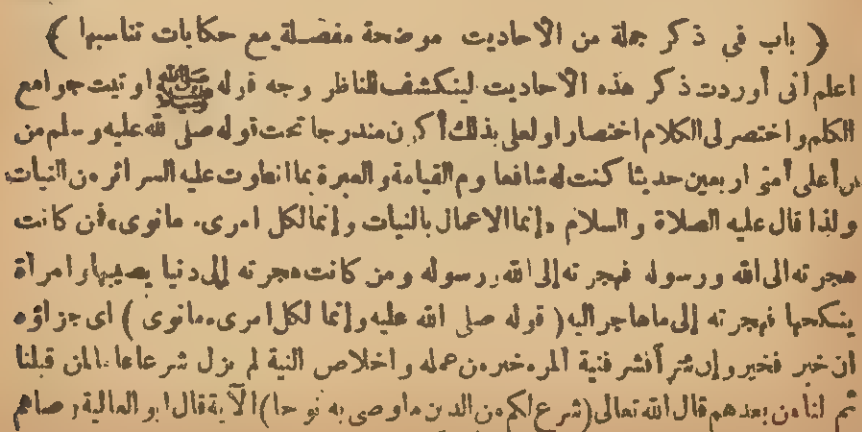 ( باب في ذكر جملة من الأحاديث موضحة مفصلة مع حكايات تناسبها )
اعلم أنى أوردت ذكر هذه الأحاديث لينكشف للناظر وجه قوله ﷺ اوتيت جوامع
الكلم واختصر لى الكلام اختصارا ولعلى بذلك أكون مندرجا تحت قوله صلى الله عليه وسلم من
أعلى أمتى اربعين حديثا كنت له شافعا يوم القيامة والعبرة بما انطوت عليه السرائر من النيات
ولذا قال عليه الصلاة والسلام إنما الاعمال بالنيات وإنما لكل امرىء مانوى فمن كانت
هجرته الى الله ورسوله فهجرته إلى الله ورسوله ومن كانت هجرته إلى دنيا يصيبها وامرأة
ينكحها فهجرته إلى ماهاجر اليه ( قوله صلى الله عليه وإنما لكل امرىء مانوى ) اى جزاؤه
ان خير فخير وإن شرأ فشر فنية المرء خير من عمله واخلاص النية لم يزل شرعا عاما لمن قبلنا
ثم لنا من بعدهم قال الله تعالى (شرع لكم من الدين ما وصى به نوحا) الآية قال ابو العالية وصاهم